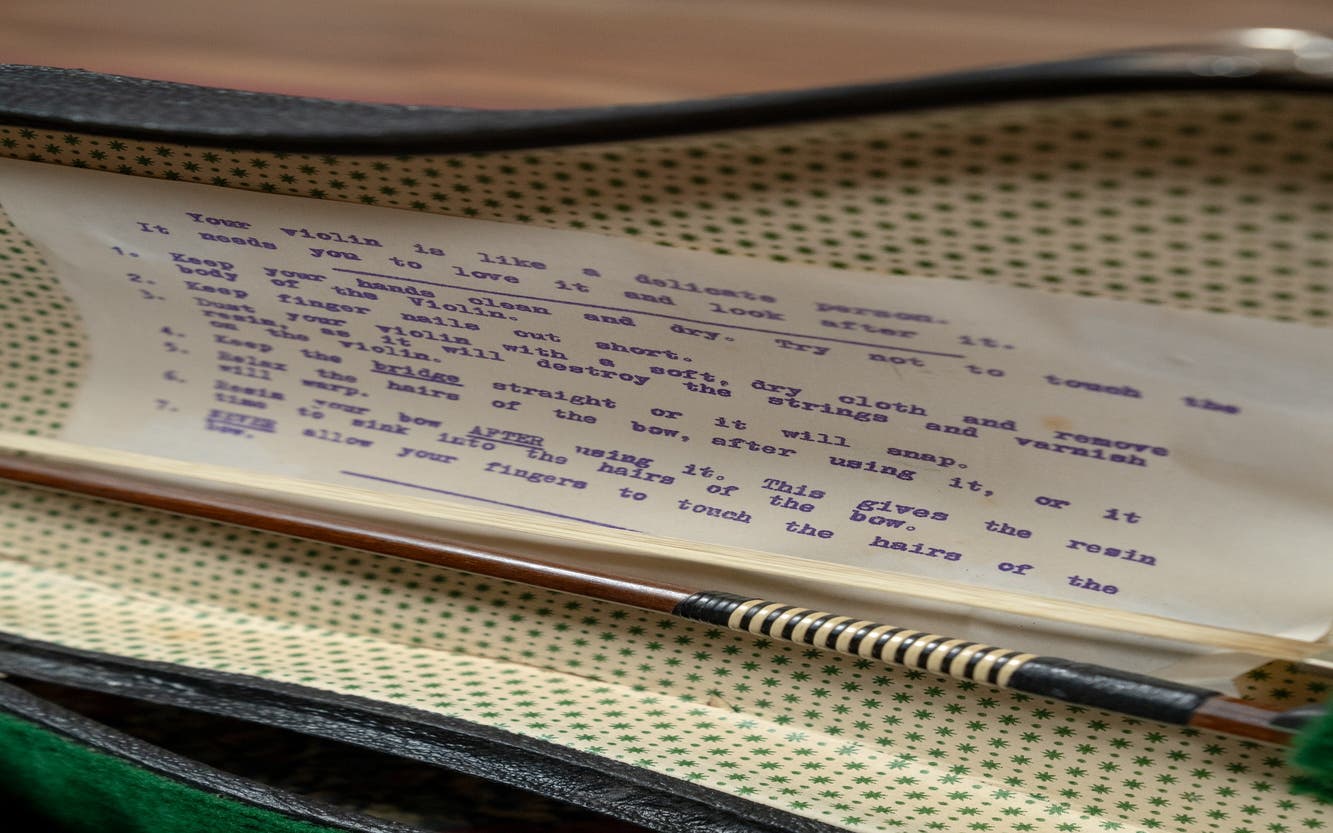 Your violin is like a delicate person.
It needs you to love it and look after it.
1. Keep your hands clean and dry. Try not to touch the
body of the Violin.
2. Keep finger nails cut short.
3. Dust your violin with a soft, dry cloth and remove
resin, as it will destroy the strings and varnish
on the violin.
4. Keep the bridge straight or it will snap.
5. Relax the hairs of the bow, after using it, or it
will warp.
6. Resin your bow AFTER using it. This gives the resin
time to sink into the hairs of the bow.
7. NEVER allow your fingers to touch the hairs of the
bow.